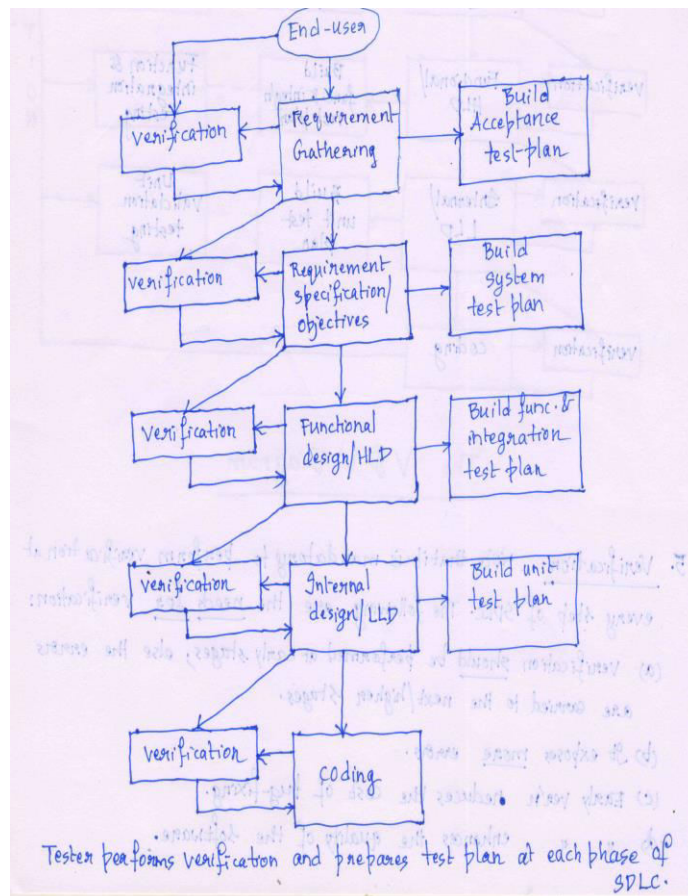 End-user
verification
Requirement
Gathering
Build
Acceptance
test plan
verification
Requirement
specification/
objectives
Build
system
test plan
verification
Functional
design/HLD
Build func. &
integration
test plan
verification
Internal
design/LLD
Build unit
test plan
verification
coding
Tester performs verification and prepares test plan at each phase of
SDLC.